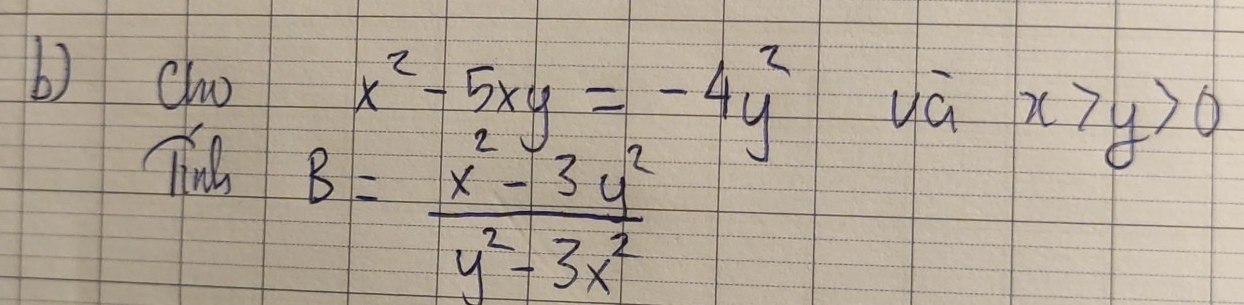 b) Cho x² - 5xy = - 4y² và x > y > 0
Tính B = \frac{x² - 3y²}{y² - 3x²}